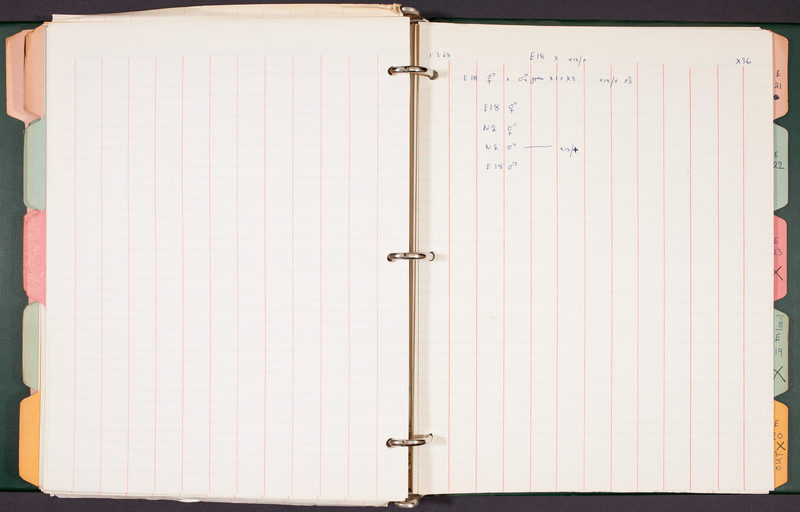 3.68 E18 x e18/+ x36
E18 ⚥ x ♂s from x1, x2. e18/+ ♂3
E18 ⚥
N2 ⚥
N2 ♂ —— e18/+
E18 ♂
E 21
E 22
E 23 X
E 19 X
E 20 X OUT